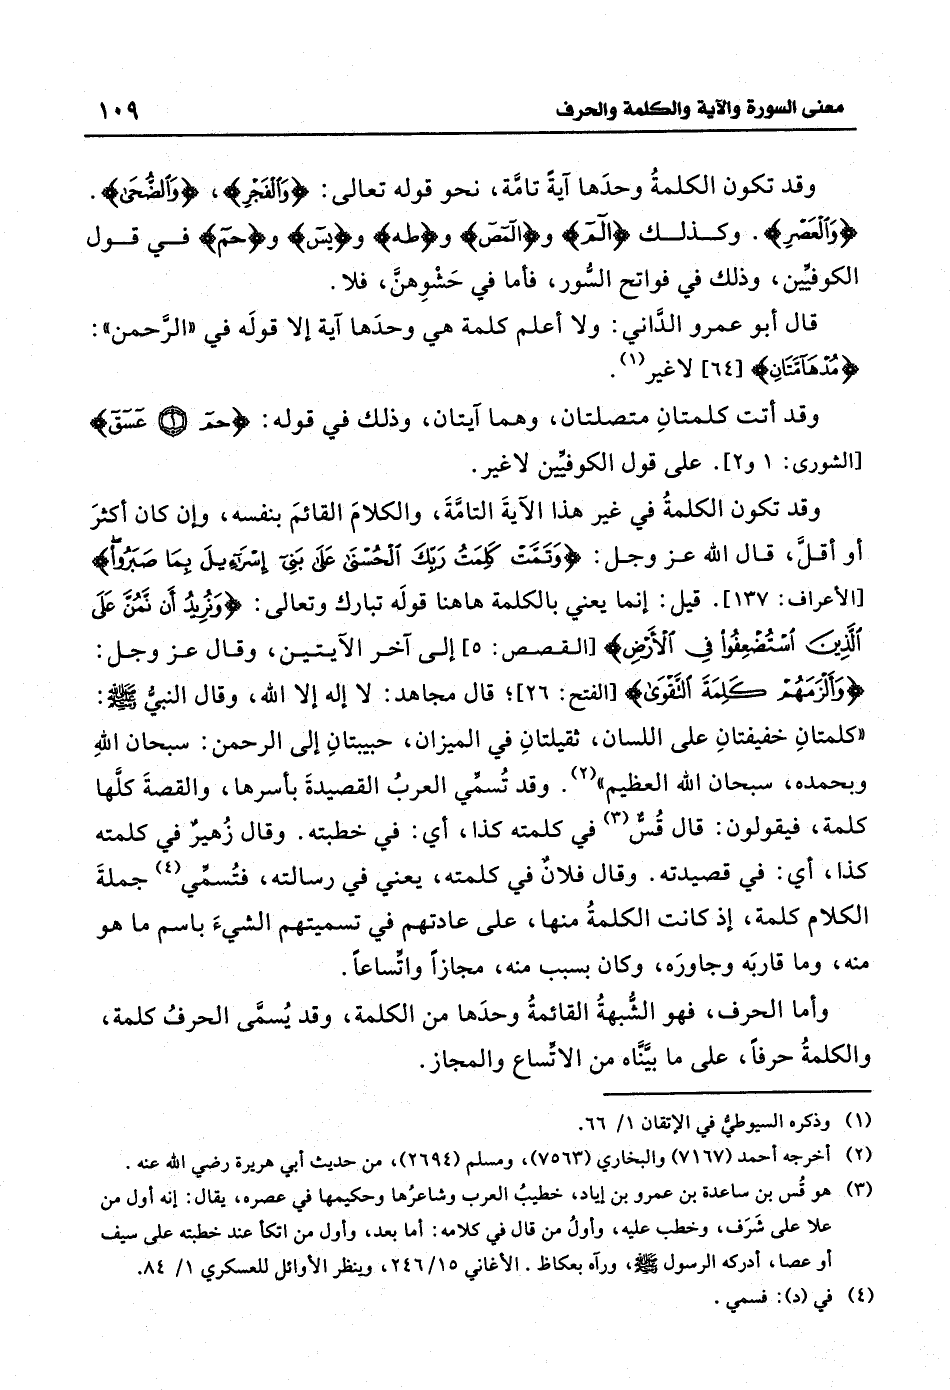 معنى السورة والآية والكلمة والحرف ١٠٩
وقد تكون الكلمةُ وحدَها آيةً تامَّة، نحو قوله تعالى: ﴿وَٱلْفَجْرِ﴾، ﴿وَٱلضُّحَىٰ﴾.
﴿وَٱلْعَصْرِ﴾. وكذلك ﴿الٓمٓ﴾ و﴿الٓمٓصٓ﴾ و﴿طه﴾ و﴿يسٓ﴾ و﴿حمٓ﴾ في قول
الكوفيِّين، وذلك في فواتح السُّور، فأما في حَشْوِهنَّ، فلا.
قال أبو عمرو الدَّاني: ولا أعلم كلمة هي وحدَها آية إلا قولَه في «الرَّحمن»:
﴿مُدْهَآمَّتَانِ﴾ [٦٤] لاغير(١).
وقد أتت كلمتانِ متصلتان، وهما آيتان، وذلك في قوله: ﴿حمٓ ۝١ عٓسٓقٓ﴾
[الشورى: ١ و٢]. على قول الكوفيِّين لاغير.
وقد تكون الكلمةُ في غير هذا الآيةَ التامَّةَ، والكلامَ القائمَ بنفسه، وإن كان أكثرَ
أو أقلَّ، قال الله عز وجل: ﴿وَتَمَّتْ كَلِمَتُ رَبِّكَ ٱلْحُسْنَىٰ عَلَىٰ بَنِيٓ إِسْرَٰٓءِيلَ بِمَا صَبَرُوا۟ۖ﴾
[الأعراف: ١٣٧]. قيل: إنما يعني بالكلمة هاهنا قولَه تبارك وتعالى: ﴿وَنُرِيدُ أَن نَّمُنَّ عَلَى
ٱلَّذِينَ ٱسْتُضْعِفُوا۟ فِى ٱلْأَرْضِ﴾ [القصص: ٥] إلى آخر الآيتين، وقال عز وجل:
﴿وَأَلْزَمَهُمْ كَلِمَةَ ٱلتَّقْوَىٰ﴾ [الفتح: ٢٦]؛ قال مجاهد: لا إله إلا الله، وقال النبيُّ ﷺ:
«كلمتانِ خفيفتانِ على اللسان، ثقيلتانِ في الميزان، حبيبتانِ إلى الرحمن: سبحان اللهِ
وبحمده، سبحان الله العظيم»(٢). وقد تُسمِّي العربُ القصيدةَ بأسرها، والقصةَ كلَّها
كلمة، فيقولون: قال قُسٌّ(٣) في كلمته كذا، أي: في خطبته. وقال زُهيرٌ في كلمته
كذا، أي: في قصيدته. وقال فلانٌ في كلمته، يعني في رسالته، فتُسمِّي(٤) جملةَ
الكلام كلمة، إذ كانت الكلمةُ منها، على عادتهم في تسميتهم الشيءَ باسم ما هو
منه، وما قاربَه وجاورَه، وكان بسبب منه، مجازاً واتِّساعاً.
وأما الحرف، فهو الشُّبهةُ القائمةُ وحدَها من الكلمة، وقد يُسمَّى الحرفُ كلمة،
والكلمةُ حرفاً، على ما بيَّنَّاه من الاتِّساع والمجاز.
(١) وذكره السيوطيُّ في الإتقان ١/ ٦٦.
(٢) أخرجه أحمد (٧١٦٧) والبخاري (٧٥٦٣)، ومسلم (٢٦٩٤)، من حديث أبي هريرة رضي الله عنه.
(٣) هو قُس بن ساعدة بن عمرو بن إياد، خطيبُ العرب وشاعرُها وحكيمها في عصره، يقال: إنه أول من
علا على شَرَف، وخطب عليه، وأولُ من قال في كلامه: أما بعد، وأول من اتكأ عند خطبته على سيف
أو عصا، أدركه الرسول ﷺ، ورآه بعكاظ. الأغاني ١٥/ ٢٤٦، وينظر الأوائل للعسكري ١/ ٨٤.
(٤) في (د): فسمي.